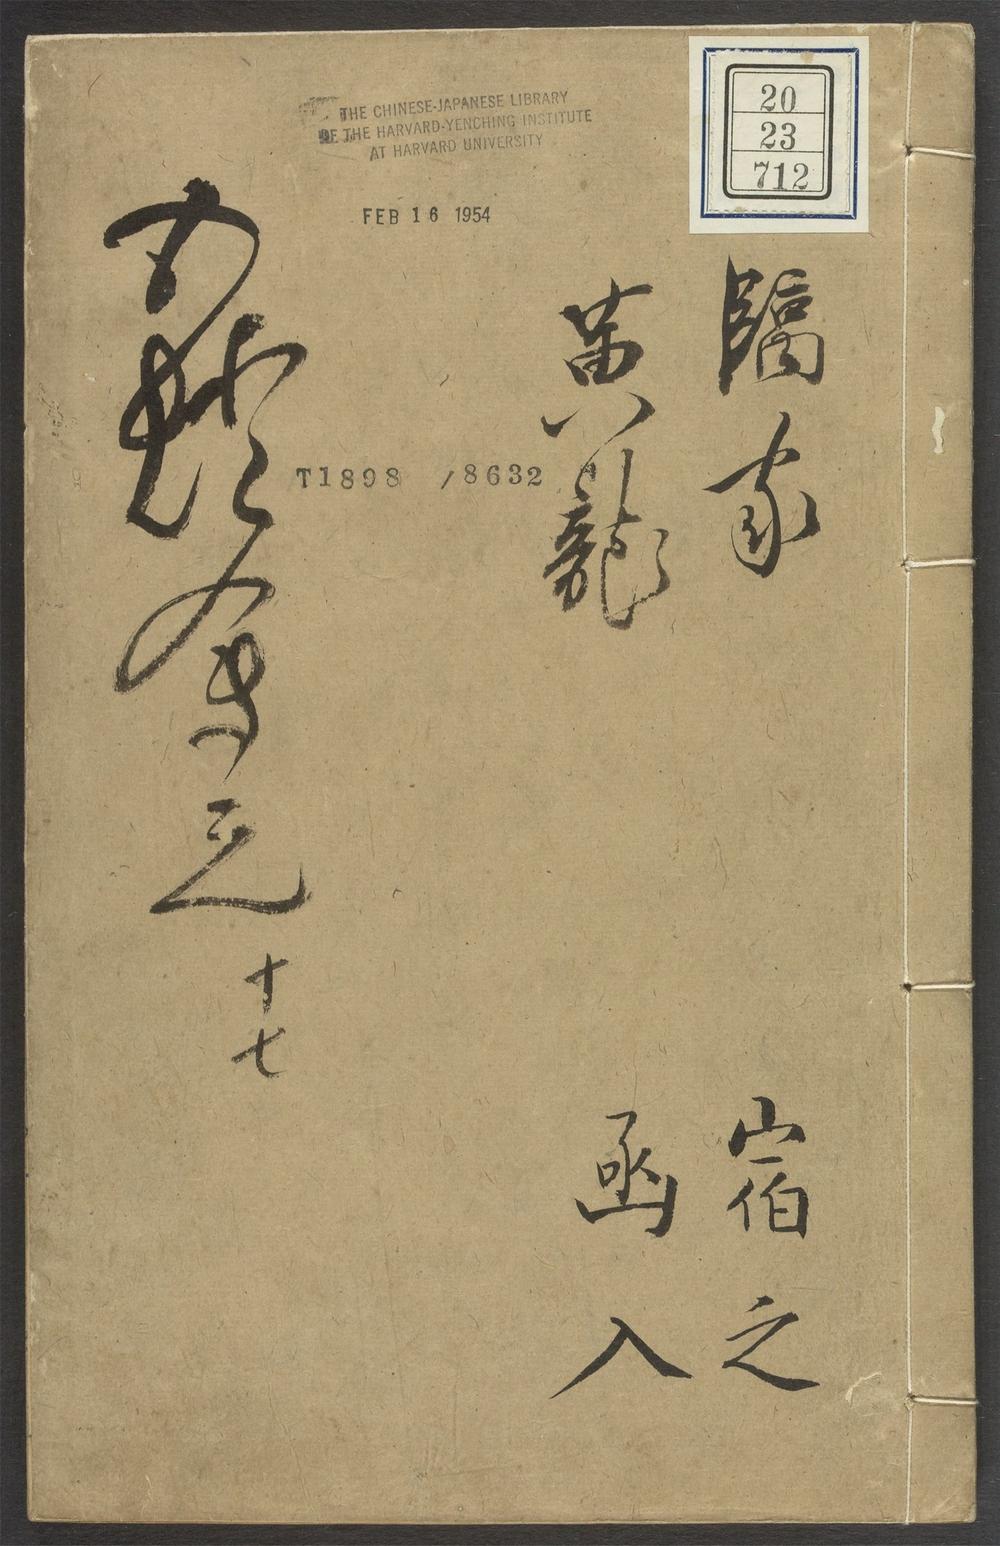 20
23
712
THE CHINESE-JAPANESE LIBRARY
OF THE HARVARD-YENCHING INSTITUTE
AT HARVARD UNIVERSITY
FEB 16 1954
臨家 宿之
黄龍 函入
T1898 /8632
五燈會元 十七